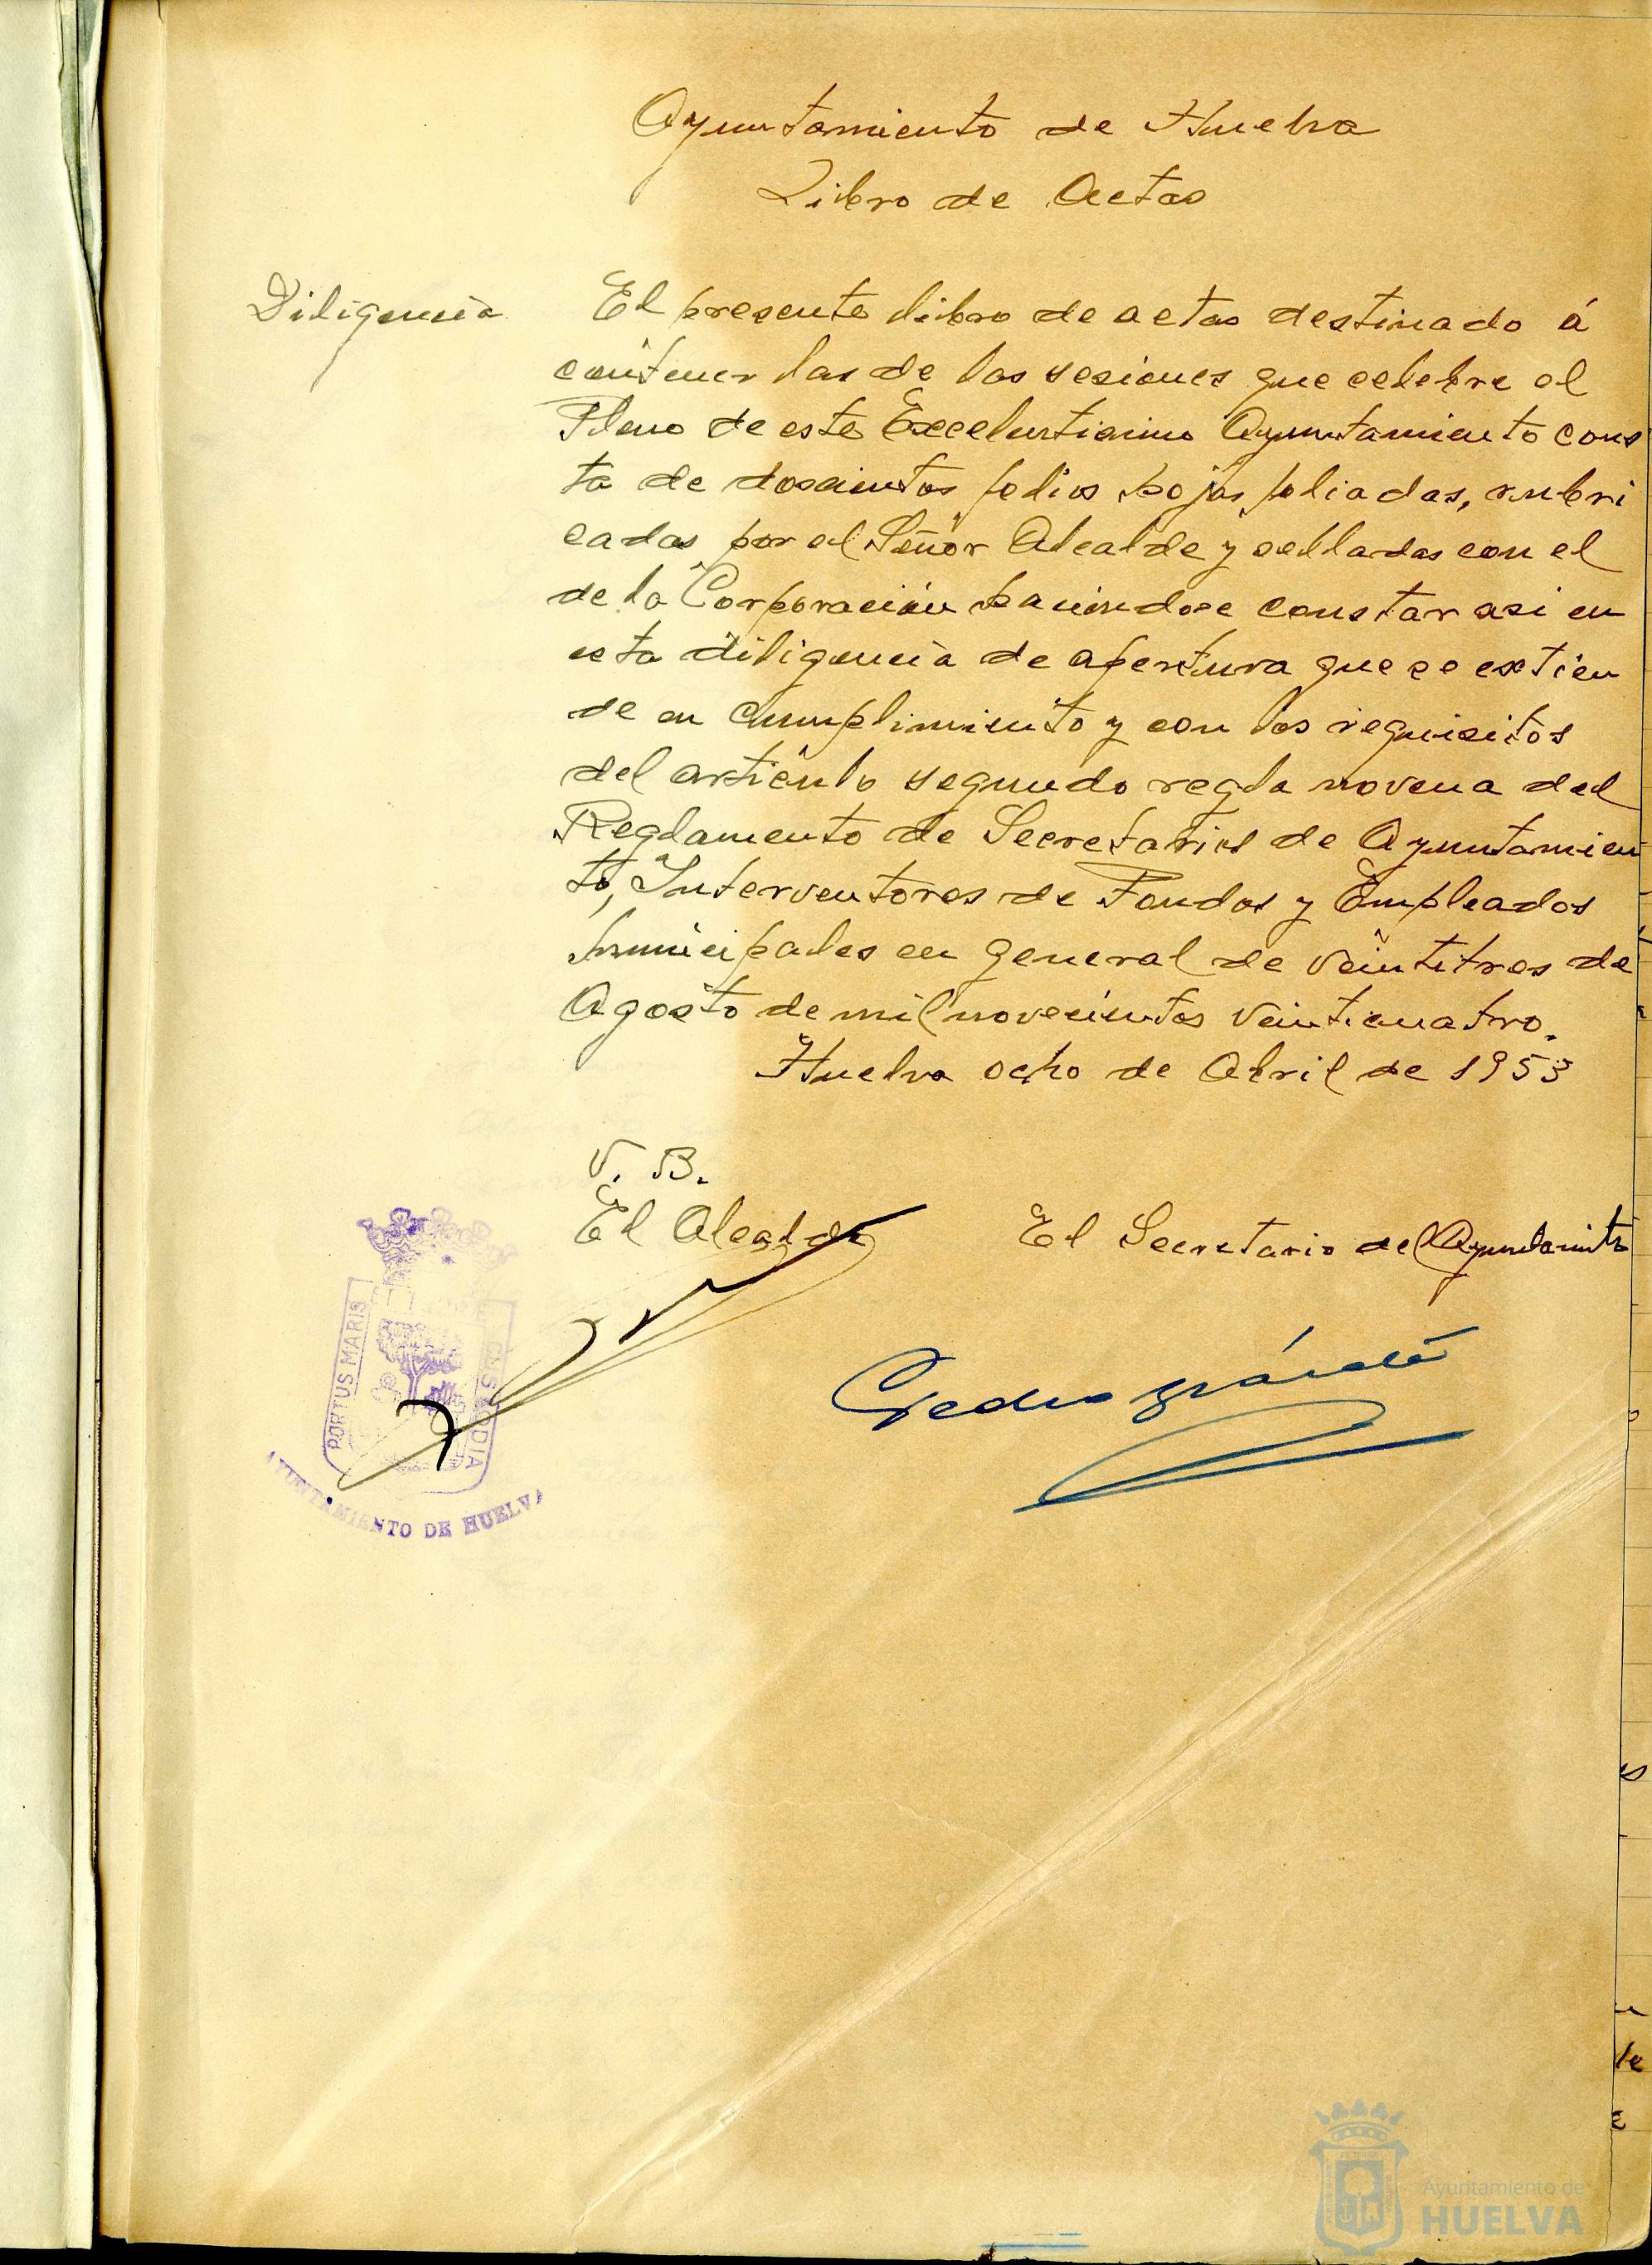 Ayuntamiento de Huelva
Libro de Actas
Diligencia
El presente libro de actas destinado á
contener las de las sesiones que celebre el
Pleno de este Excelentisimo Ayuntamiento cons
ta de doscientos folios hojas foliadas, rubri
cadas por el Señor Alcalde y selladas con el
de la Corporación haciendose constar asi en
esta diligencia de apertura que se extien
de en cumplimiento y con los requisitos
del articulo segundo regla novena del
Reglamento de Secretarios de Ayuntamien
to, Interventores de Fondos y Empleados
Municipales en general de veintitres de
Agosto de mil novecientos veinticuatro.
Huelva ocho de Abril de 1953
V. B.
El Alcalde
El Secretario del Ayuntamito
PORTUS MARIS
CUSTODIA
AYUNTAMIENTO DE HUELVA
Pedro
Ayuntamiento de
HUELVA